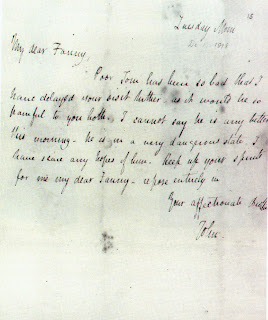 Tuesday Morn
My dear Fanny,
Poor Tom has been so bad that I
have delayed your visit hither as it would be so
painful to you both. I cannot say he is any better
this morning - he is in a very dangerous state - I
have scarce any hopes of him. Keep up your spirits
for me my dear Fanny - repose entirely in
Your affectionate Brother
John.